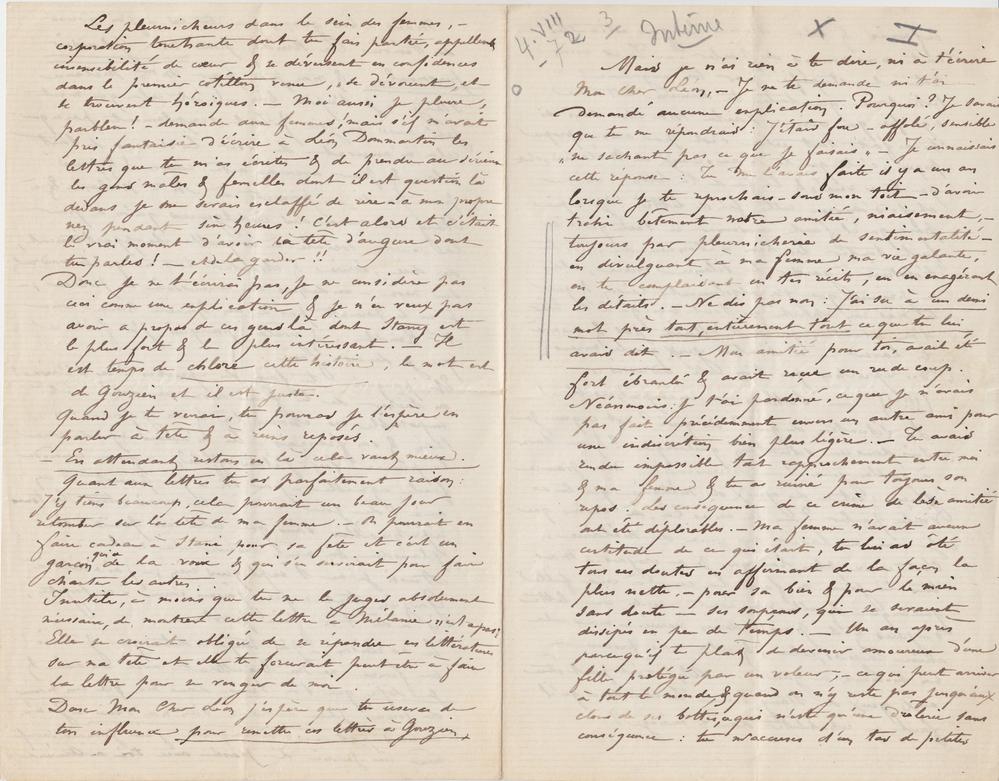 4. VIII - 72
3/
Intime
x
I
Mais je n'ai rien à te dire, ni à t'écrire
Mon cher Léon, - Je ne te demande ni t'ai
demandé aucune explication. Pourquoi? Je savais
que tu me répondrais: J'étais fou - affolé, sensible
"ne sachant pas ce que je faisais" - Je connaissais
cette réponse: Tu me l'avais faite il y a un an
lorsque je te reprochais - sous mon toit - d'avoir
trahi bêtement notre amitié, niaisement, -
toujours par pleurnicherie de sentimentalité -
en divulguant à ma femme ma vie galante,
en te complaisant en tes récits, en en exagérant
les détails. - Ne dis pas non: J'ai su à un demi
mot près tout, entièrement tout ce que tu lui
avais dit. - Mon amitié pour toi, avait été
fort ébranlée & avait reçue un rude coup.
Néanmoins je t'ai pardonné, ce que je n'avais
pas fait précédemment envers un autre ami pour
une indiscrétion bien plus légère. - Tu avais
rendu impossible tout rapprochement entre moi
& ma femme & tu as ruiné pour toujours son
repos. Les conséquences de ce crime de lèse amitié
ont été déplorables. - Ma femme n'avait aucune
certitude de ce qui était, tu lui as ôté
tous ses doutes en affirmant de la façon la
plus nette, - pour son bien & pour le mien
sans doute - ses soupçons, qui se seraient
dissipés en peu de temps. - Un an après
parcequ'il te plait de devenir amoureux d'une
fille protégée par un voleur, - ce qui peut arriver
à tout le monde & quand on n'y reste pas jusqu'aux
clous de ses bottes, ça n'est qu'une drôlerie sans
conséquence: tu m'accuses d'un tas de petites
Les pleurnicheurs dans le sein des femmes, -
corporation touchante dont tu fais partie, appellent
insensibilité de cœur & se déversent en confidences
dans le premier cotillon venu, se dévouent, et
se trouvent héroïques. - Moi aussi je pleure,
parbleu! - demande aux femmes! mais s'il n'avait
pris fantaisie d'écrire à Léon Dommartin les
lettres que tu m'as écrites & de prendre au sérieux
les gens mâles & femelles dont il est question là
dedans je me serais esclaffé de rire - à mon propre
nez pendant six heures! C'est alors et c'était
le vrai moment d'avoir la tête d'augure dont
tu parles! - et de la garder!!
Donc je ne t'écrirai pas, je ne considère pas
ceci comme une explication & je n'en veux pas
avoir à propos de ces gens là dont Stany est
le plus fort & le plus intéressant. - Il
est temps de chlore cette histoire, le mot est
de Gouzien et il est juste.
Quand je te verrai, tu pourras je l'espère en
parler à tête & à reins reposés.
- En attendant restons en là cela vaut mieux.
Quant aux lettres tu as parfaitement raison:
J'y tiens beaucoup, cela pourrait un beau jour
retomber sur la tête de ma femme. - On pourrait en
faire cadeau à Stani, pour sa fête et c'est un
garçon qui a de la voix & qui s'en servirait pour faire
chanter les autres.
Inutile, à moins que tu ne le juges absolument
nécessaire, de montrer cette lettre à Mélanie
Elle se croirait obligée de se répandre en littératures
sur ma tête et elle te forcerait peut être à faire
la lettre pour se venger de moi.
Donc Mon Cher Léon j'espère que tu useras de
ton influence pour remettre ces lettres à Gouzien,